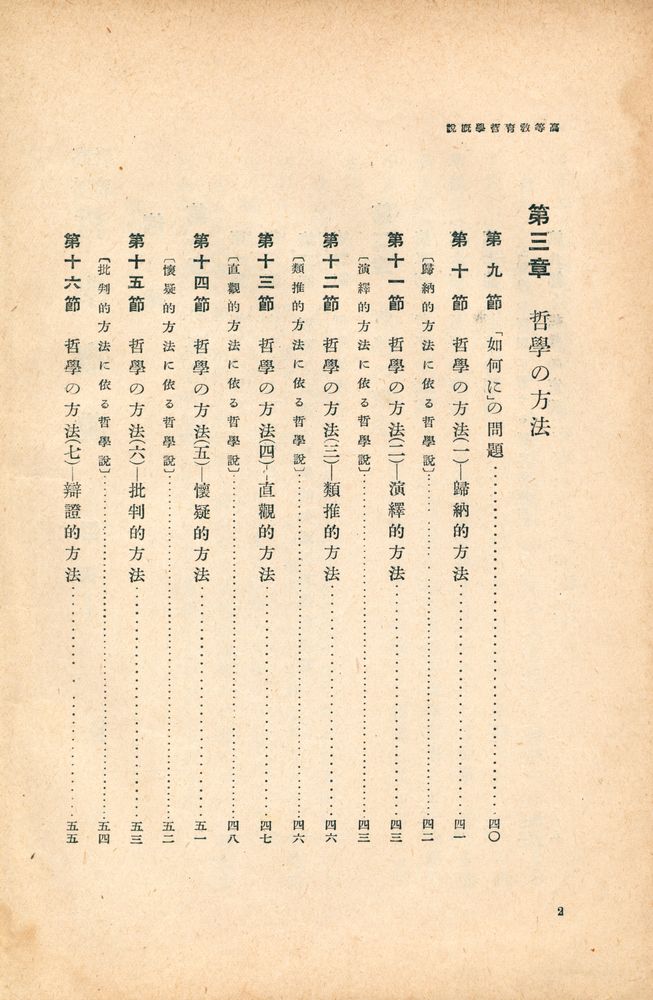 高等教育哲學概說
第三章 哲學の方法
第九節 「如何に」の問題……四〇
第十節 哲學の方法(一)—歸納的方法……四一
〔歸納的方法に依る哲學說〕……四二
第十一節 哲學の方法(二)—演繹的方法……四三
〔演繹的方法に依る哲學說〕……四三
第十二節 哲學の方法(三)—類推的方法……四六
〔類推的方法に依る哲學說〕……四六
第十三節 哲學の方法(四)—直觀的方法……四七
〔直觀的方法に依る哲學說〕……四八
第十四節 哲學の方法(五)—懷疑的方法……五一
〔懷疑的方法に依る哲學說〕……五二
第十五節 哲學の方法(六)—批判的方法……五三
〔批判的方法に依る哲學說〕……五四
第十六節 哲學の方法(七)—辯證的方法……五五
2